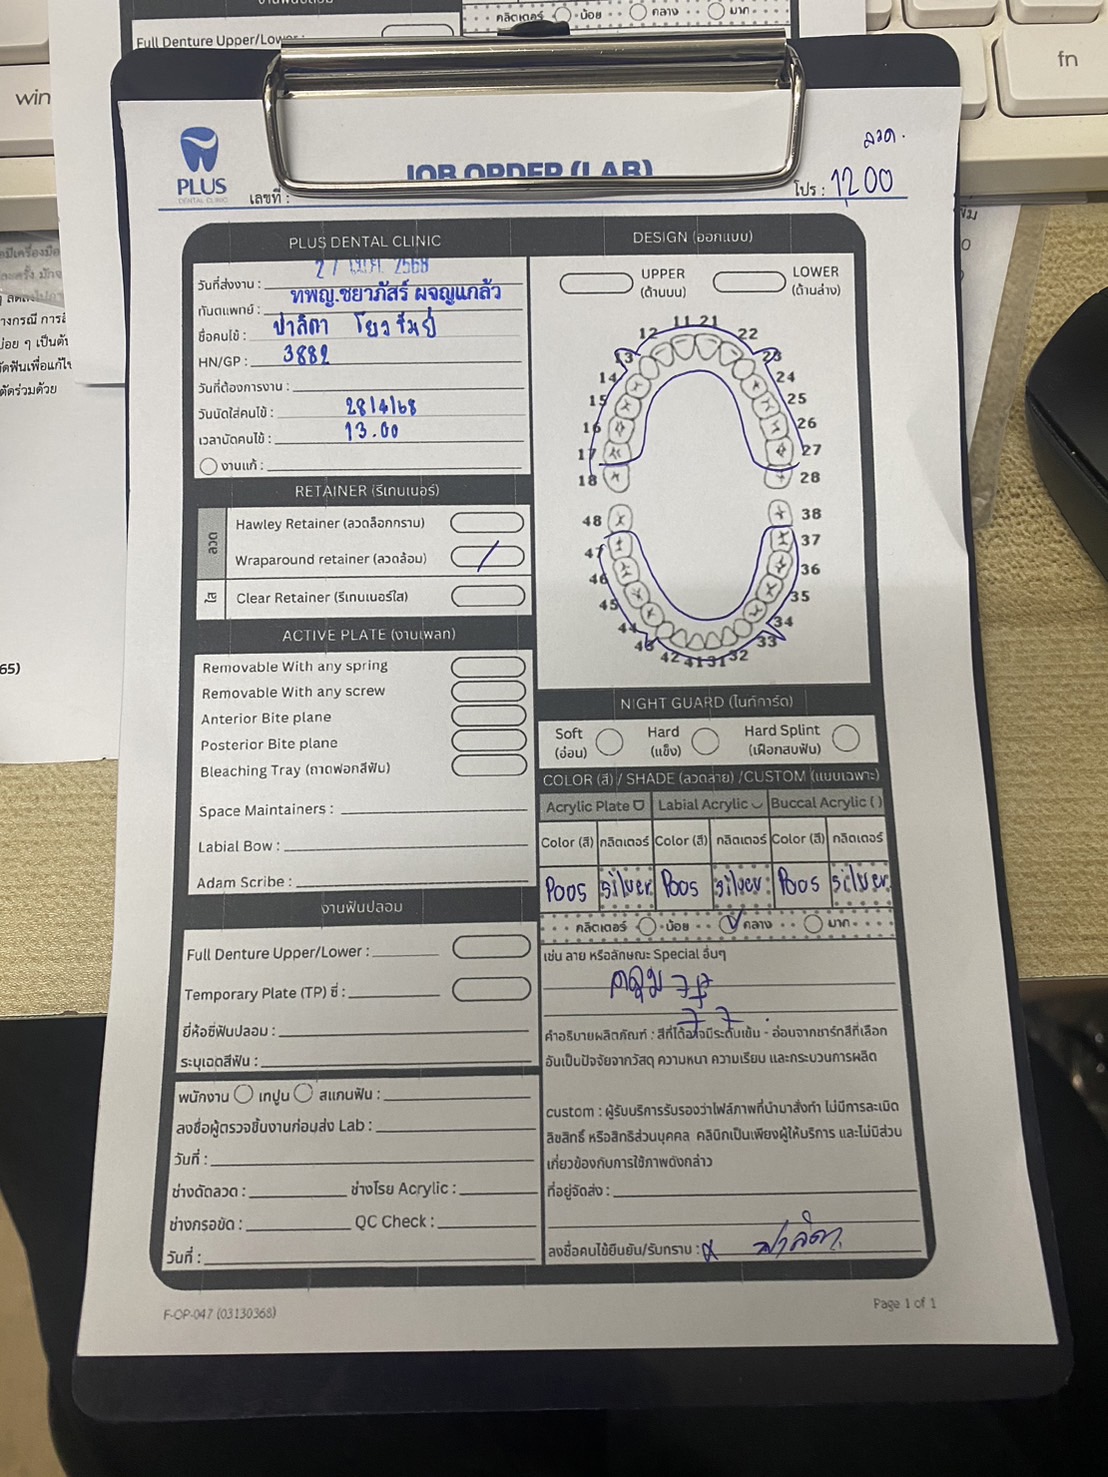 คลิตเตอร์ น้อย กลาง มาก
Full Denture Upper/Lower :
win
fn
65)
PLUS
DENTAL CLINIC
JOB ORDER (LAB)
เลขที่ :
ลวด.
โปร : 1200
PLUS DENTAL CLINIC
วันที่ส่งงาน : 27 เม.ย. 2568
ทันตแพทย์ : ทพญ.ชยาภัสร์ ผจญแกล้ว
ชื่อคนไข้ : ปาลิตา
HN/GP : 3882
วันที่ต้องการงาน :
วันนัดใส่คนไข้ : 28/4/68
เวลานัดคนไข้ : 13.00
งานแก้ :
RETAINER (รีเทนเนอร์)
ลวด
Hawley Retainer (ลวดล็อกกราม)
Wraparound retainer (ลวดล้อม) /
ใส
Clear Retainer (รีเทนเนอร์ใส)
ACTIVE PLATE (งานเพลท)
Removable With any spring
Removable With any screw
Anterior Bite plane
Posterior Bite plane
Bleaching Tray (ถาดฟอกสีฟัน)
Space Maintainers :
Labial Bow :
Adam Scribe :
งานฟันปลอม
Full Denture Upper/Lower :
Temporary Plate (TP) ซี่ :
ยี่ห้อซี่ฟันปลอม :
ระบุเฉดสีฟัน :
พนักงาน เทปูน สแกนฟัน :
ลงชื่อผู้ตรวจชิ้นงานก่อนส่ง Lab :
วันที่ :
ช่างดัดลวด : ช่างโรย Acrylic :
ช่างกรอขัด : QC Check :
วันที่ :
DESIGN (ออกแบบ)
UPPER
(ด้านบน)
LOWER
(ด้านล่าง)
11 21
12 22
13 23
14 24
15 25
16 26
17 27
18 28
48 38
47 37
46 36
45 35
44 34
43 33
42 41 31 32
NIGHT GUARD (ไนท์การ์ด)
Soft
(อ่อน)
Hard
(แข็ง)
Hard Splint
(เฝือกสบฟัน)
COLOR (สี) / SHADE (ลวดลาย) /CUSTOM (แบบเฉพาะ)
Acrylic Plate Labial Acrylic Buccal Acrylic ( )
Color (สี) กลิตเตอร์ Color (สี) กลิตเตอร์ Color (สี) กลิตเตอร์
P005 silver P005 silver P005 silver
คลิตเตอร์ น้อย กลาง มาก
เช่น ลาย หรือลักษณะ Special อื่นๆ
คลุม 7 7
7 7
คำอธิบายผลิตภัณฑ์ : สีที่ได้อาจมีระดับเข้ม - อ่อนจากชาร์ทสีที่เลือก
อันเป็นปัจจัยจากวัสดุ ความหนา ความเรียบ และกระบวนการผลิต
custom : ผู้รับบริการรับรองว่าไฟล์ภาพที่นำมาสั่งทำ ไม่มีการละเมิด
ลิขสิทธิ์ หรือสิทธิส่วนบุคคล คลินิกเป็นเพียงผู้ให้บริการ และไม่มีส่วน
เกี่ยวข้องกับการใช้ภาพดังกล่าว
ที่อยู่จัดส่ง :
ลงชื่อคนไข้ยืนยัน/รับทราบ : x ปาลิตา
F-OP-047 (03130368)
Page 1 of 1